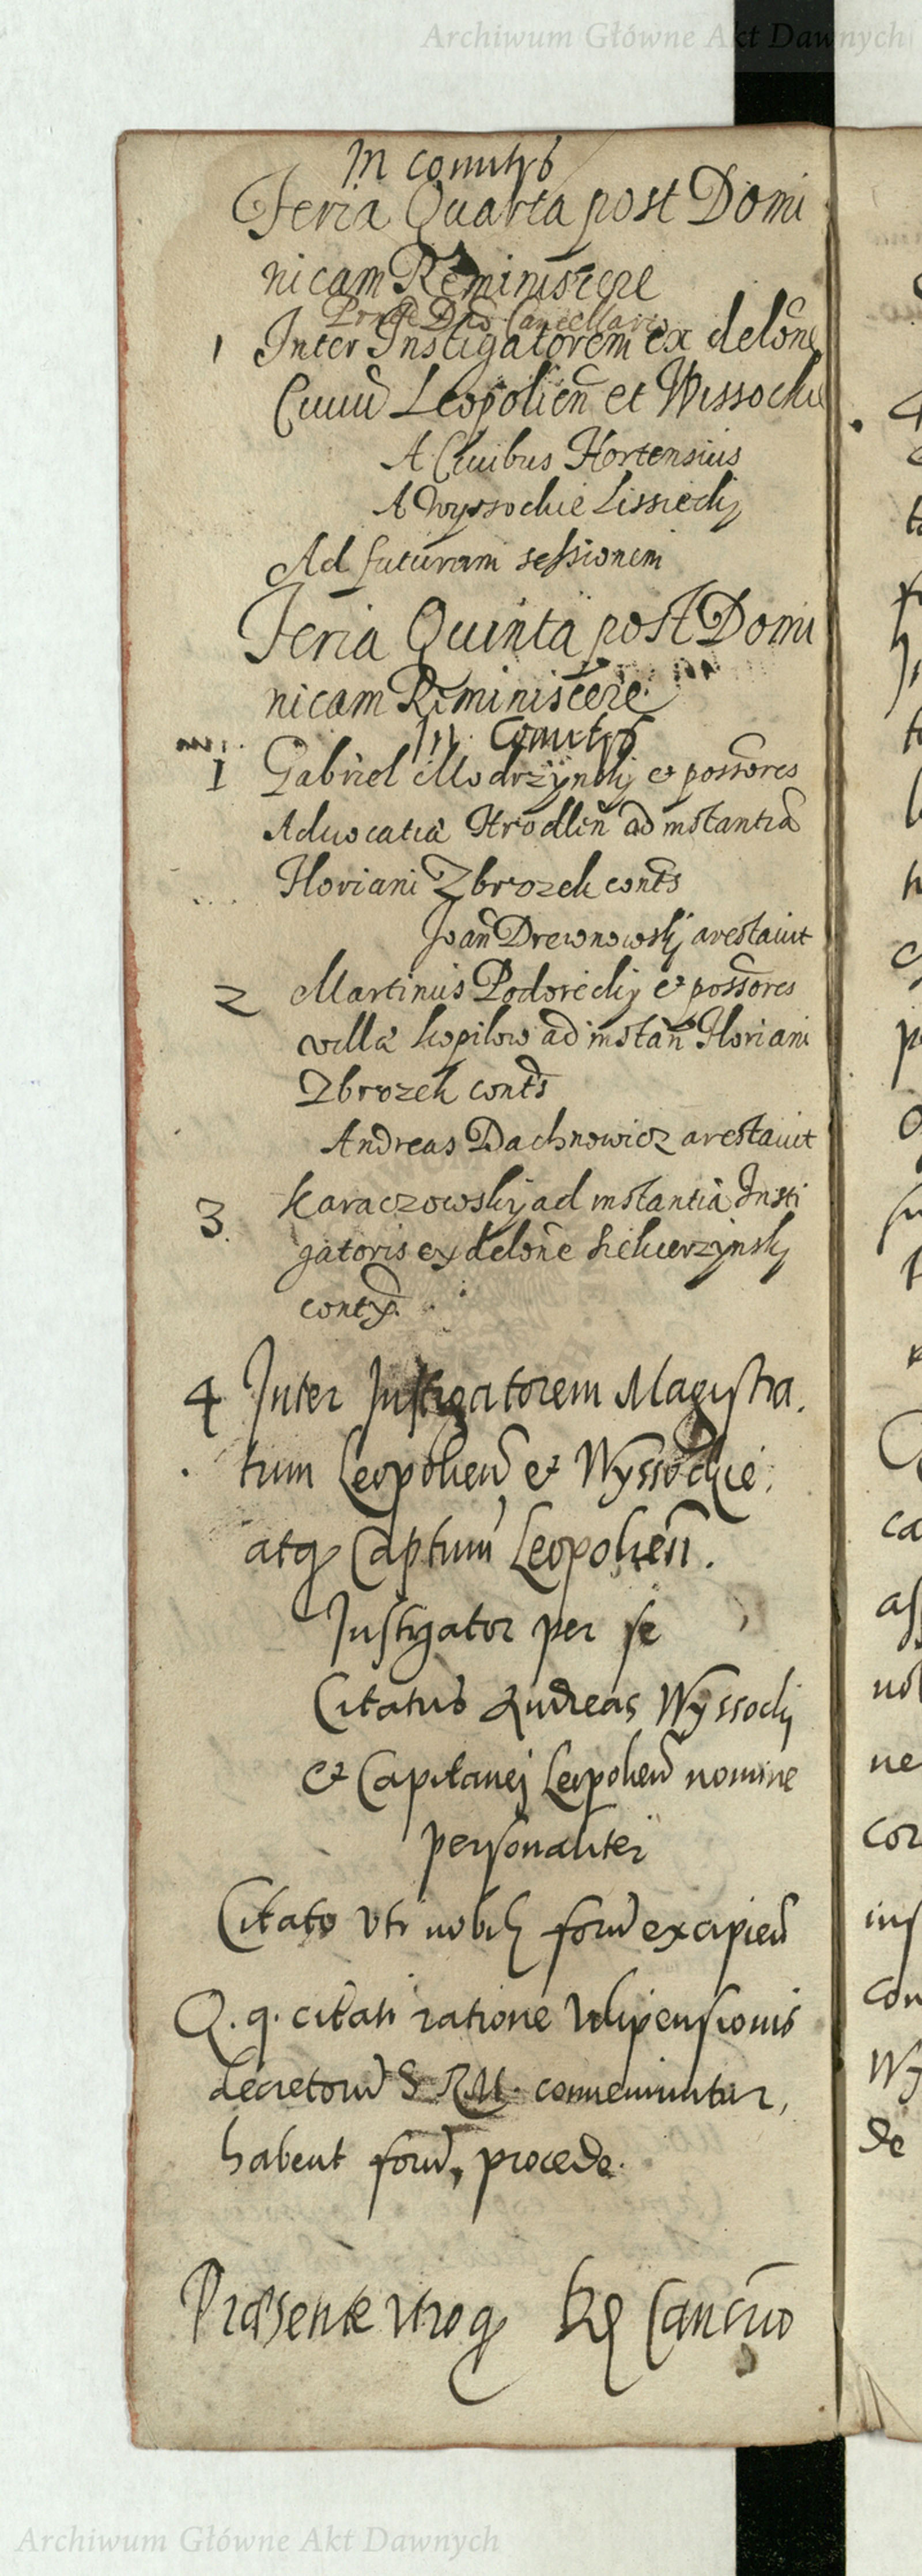 Archiwum Główne Akt Dawnych
In Comitys
Feria Quarta post Domi
nicam Reminiscere
Dno Cancellario
1 Inter Instigatorem ex delone
Civiu Leopolien et Wissockie
A Civibus Hortensius
A Wyssockie Lissiecky
Ad futuram sessionem
Feria Quinta post Domi
nicam Reminiscere
In Comitys
1 Gabriel Modrzynsky et possores
Advocatia Hrodlen ad instantia
Floriani Zbrozek conts
Joan Drewnowsky arestavit
2 Martinus Podorecky et possores
villa Kopilow ad instan Floriani
Zbrozek conts
Andreas Dachnowicz arestavit
3. Karaczowsky ad instantia Insti
gatoris ex delone Siekierzynsky
4 Inter Instigatorem Magistra.
tum Leopolien et Wyssockie.
atq Captum Leopolien.
Instigator per se
Citatus Andreas Wyssocky
et Capitanej Leopolien nomine
personaliter
Citato uti nobil foru excipien
Q. q. citati ratione vilipensionis
decretoru S RM. conveniuntur,
habent foru, procede.
Præsente utroq Cancrio
Archiwum Główne Akt Dawnych